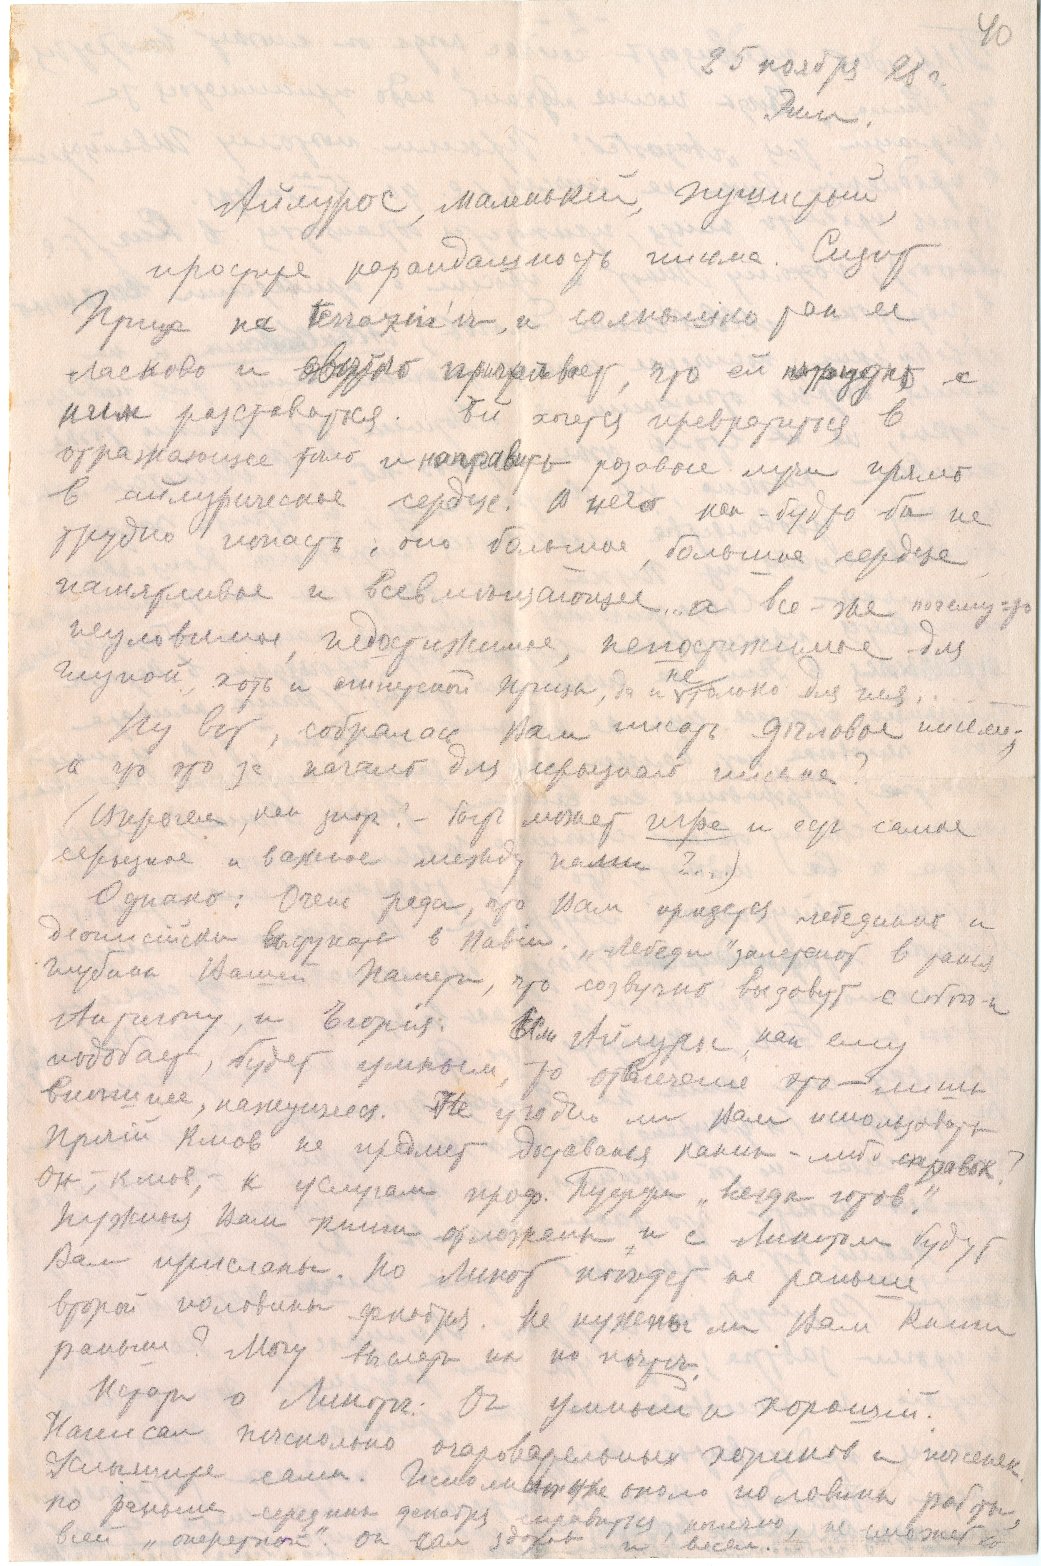 40
25 ноября 28 г.
Рим.
Айлурос, маленький, пушистый,
простите карандашность письма. Сидит
Прица на terrazin'е, и солнышко так ее
ласково и пригревает, что ей трудно с
ним расставаться. Ей хочется превратиться в
отражающее тело и направить розовые лучи прямо
в айлурическое сердце. В него как-будто бы не
трудно попасть: оно большое, большое сердце,
памятливое и всевмещающее... а все-же почему-то
неуловимое, недостижимое, непостижимое для
глупой, хоть и птицы, да и не только для нея..
Ну вот, собралась Вам писать дѣловое письмо,
а что это за начало для серьезнаго письма?
(Впрочем, как знать? – быть может игра и есть самое
серьезное и важное между нами?...)
Однако: Очень рада, что Вам придется лебединно и
выступать в Павiи. „Лебеди" залетают в такия
глубины Вашей Памяти, что созвучно вызовут с собою и
Антигону, и Если Айлуры, как ему
подобает, будет умным, то отвлечение это – лишь
внешнее, кажущееся. Не угодно ли Вам использовать
клюв на предмет доставанья каких-либо справок?
Он, – клюв, – к услугам проф. „всегда готов."
Нужныя Вам книги отложены и с Ликотом будут
Вам присланы. Но Ликот поѣдет не раньше
второй половины декабря. Не нужны ли Вам книги
раньше? Могу выслать их по почтѣ.
Кстати о Ликотѣ: Он умный и хороший.
Написал нѣсколько очаровательных хориков и пѣсенек.
Услышите сами. около половины работы,
но раньше середины декабря справиться, конечно, не сможет со
всей „опереттой". Он сам здоров и весел.